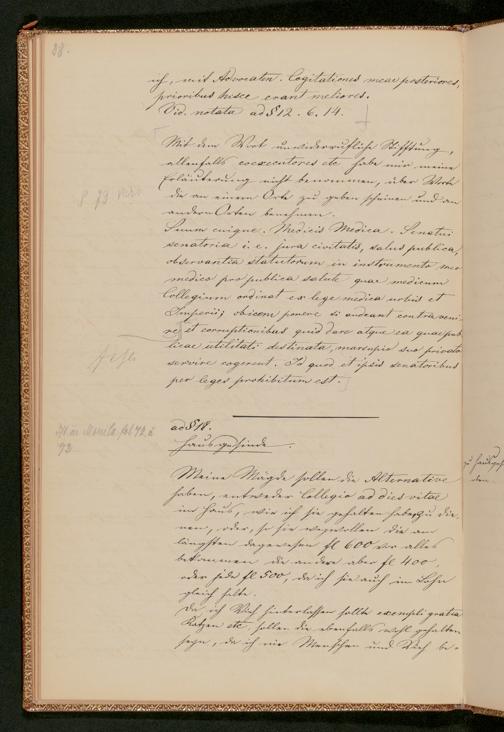 88.
ich, mit Advocaten. Cogitationes meae posteriores,
prioribus hisce erant meliores.
Vid. notata ad § 12. 6. 14.
Mit dem Wort unwiderrufliche Stifftung,
allenfalls coexecutores etc habe mir meine
Erläuterung nicht benommen, über Worte
die an einem Orte zu geben scheinen und an
andern Orten benehmen.
Suum cuique. Medicis Medica. Senatui
senatoria i. e. jura civitatis, salus publica,
observantia statutorum in instrumento meo
medico pro publica salute quae medicum
Collegium ordinat ex lege medica urbis et
Imperii; obicem ponere si audeant contraveni-
re et corruptionibus quid dare atque ea quae pub-
licae utilitati destinata, marsupio suo privato
servire cogerent. Id quod et ipsis senatoribus
per leges prohibitum est.
ad § 18.
Hausgesinde.
Meine Mägde sollen die Alternative
haben, entweder Collegio ad dies vitae
im Haus, wie ich sie gehalten habe, zu die-
nen, oder, so sie wegwollen die am
längsten dagewesen fl 600 vor alles
bekommen die andere aber fl 400,
oder jede fl 500, da ich sie auch im Lohn
gleich halte.
Da ich Vieh hinterlassen sollte exempli gratia
Katzen etc sollen die ebenfalls wohl gehalten
seyn, da ich nie Menschen und Vieh be-